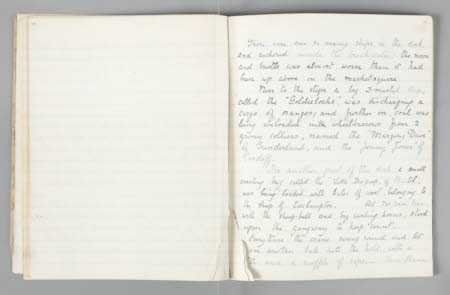 There were ever so many ships in the dock
and anchored outside the breakwater; the noise
and bustle was almost worse than it had
been up above on the market square.
Near to the steps a big 3 masted ship,
called the "Goldielocks" was discharging a
cargo of oranges; and further on, coal was
being unloaded into wheelbarrows from 2
grimy colliers, named the "Margery Daw"
of Sunderland, and the "Jenny Jones" of
Cardiff.
In another part of the dock, a small
coasting brig called the "Little Bopeep, of Bristol,
was being loaded with bales of wool belonging to
the sheep of
Old
with the sheep bell and big curling horns, stood
upon the gangway to keep count.
Every time the crane swung round and let
another bale into the hold, with a
and a of rope.